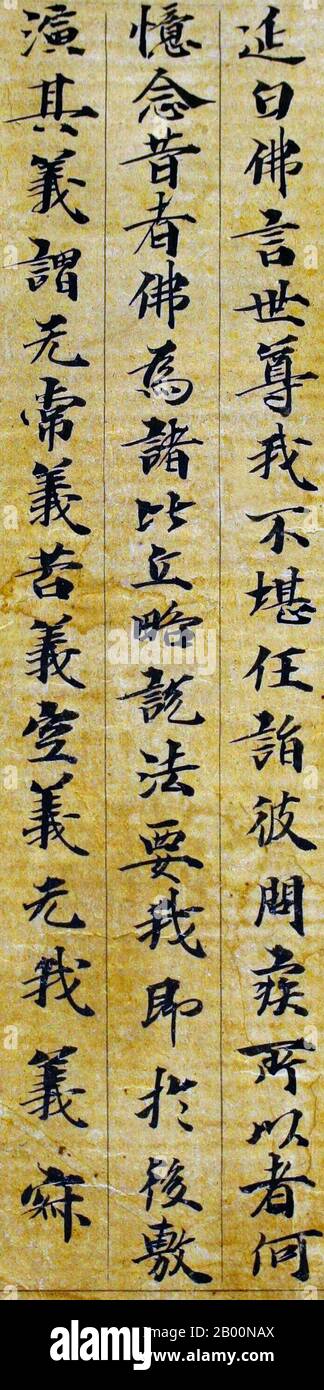 延白佛言世尊我不堪任詣彼問疾所以者何
憶念昔者佛為諸比丘略說法要我即於後敷
演其義謂无常義苦義空義无我義寂
alamy
Image ID: 2B00NAX
www.alamy.com